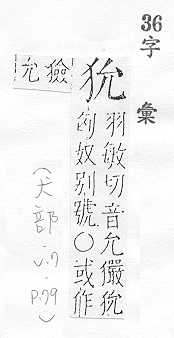 36
字彙
狁
羽敏切音允玁狁
匈奴别號〇或作
獫
允
(犬部. v.7 p.79)